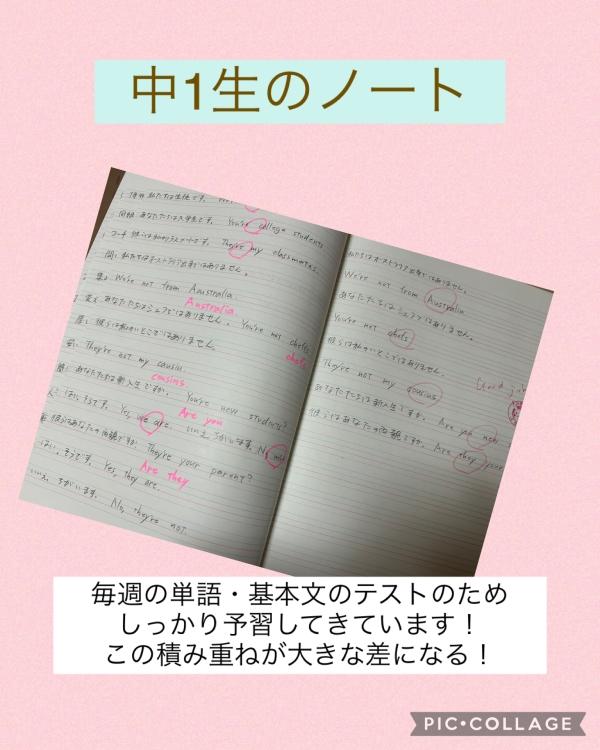 中1生のノート
私たちは生徒です。
あなたたちは大学生です。 You're college students
They're my classmates.
We're not from Aaustralia.
Australia
あなたたちはシェフではありません。 You're not chefts.
chefs
彼らは私のいとこではありません。
They're not my causin.
cousins
あなたたちは新入生ですか。 You're new students?
Are you
はい、そうです。 Yes, we are. いいえ、ちがいます。
彼らはあなたの両親ですか。 They're your parent?
Are they
はい、そうです。 Yes, they are.
いいえ、ちがいます。 No, they're not.
私たちはオーストラリア出身ではありません。
We're not from Australia
あなたたちはシェフではありません。
You're not chefs
彼らは私のいとこではありません。
They're not my cousins
あなたたちは新入生ですか。 Are you new
彼らはあなたの両親ですか。 Are they your
Good job
毎週の単語・基本文のテストのため
しっかり予習してきています！
この積み重ねが大きな差になる！
PIC•COLLAGE